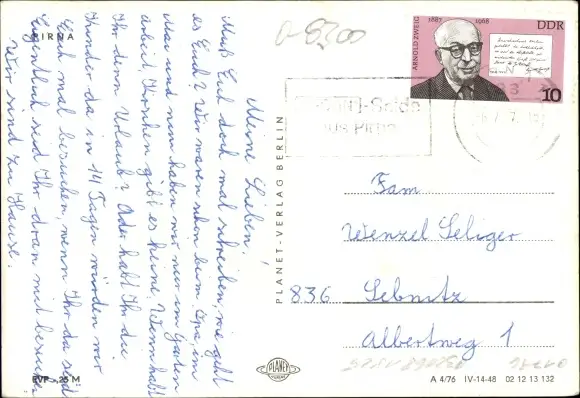 PIRNA
Meine Lieben!
Muß Euch doch mal schreiben, wie geht
es Euch? Wir waren schon beim Opa, im
Mai und nun haben wir nur im Garten
Arbeit. Kirschen gibt es keine. Wann habt
Ihr denn Urlaub? Oder habt Ihr die
Kinder da in 14 Tagen würden wir
Euch mal besuchen, wenn Ihr da seid
Eigentlich seid Ihr dran mit besuchen
Wir sind zu Hause.
EVP -,25 M
PLANET-VERLAG BERLIN
PLANET
ARNOLD ZWEIG 1887 1968
DDR
10
aus Pirna
Fam
Wenzel Seliger
836 Sebnitz
Albertweg 1
A 4/76 IV-14-48 02 12 13 132